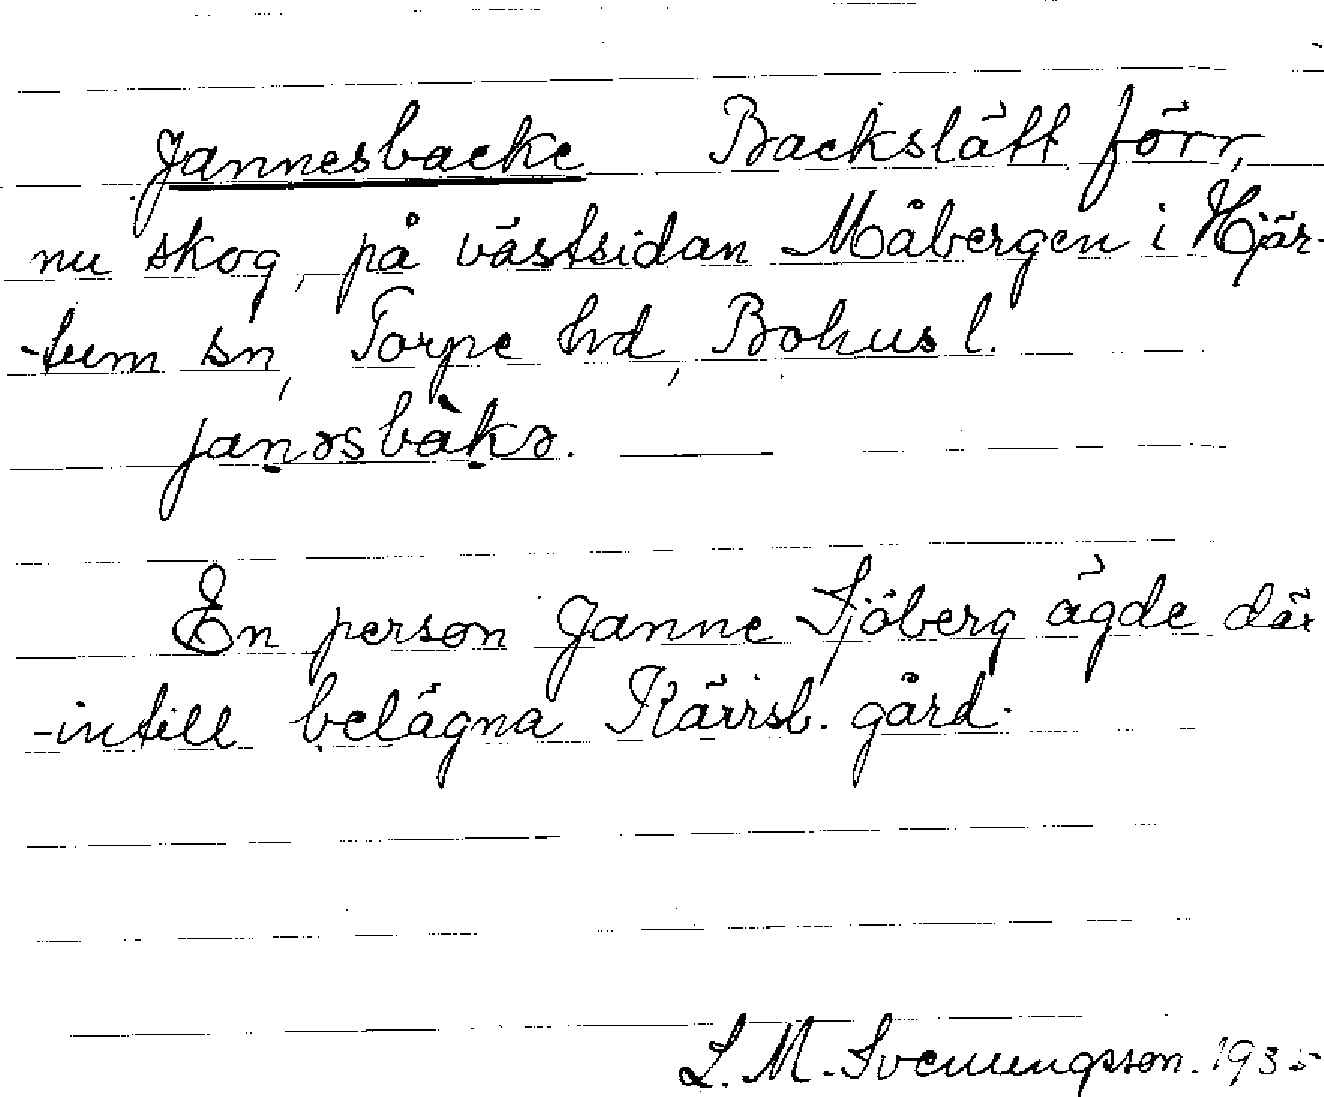 Jannesbacke Backslätt förr,
nu skog, på västsidan Måbergen i Hjär-
-tum sn, Torpe hd, Bohus l.
jan̠ɘsbàk̠ɘ.
En person Janne Sjöberg ägde där
-intill belägna Kärrsb. gård.
L. M. Svenungsson. 1935